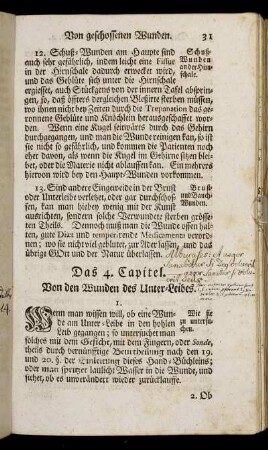 Von geschossenen Wunden. 31
12. Schuß-Wunden am Haupte sind
auch sehr gefährlich, indem leicht eine Fissur
in der Hirnschale dadurch erweckt wird,
und das Geblüte sich unter die Hirnschale
ergiesset, auch Stückgens von der innern Tafel absprin-
gen, so, daß öffters dergleichen Blessirte sterben müssen,
wo ihnen nicht bey Zeiten durch die Trepanation das ge-
ronnene Geblüte und Knöchlein herausgeschaffet wor-
den. Wenn eine Kugel seitwärts durch das Gehirn
durchgegangen, und man die Wunde reinigen kan, so ist
sie nicht so gefährlich, und kommen die Patienten noch
eher davon, als wenn die Kugel im Gehirne sitzen blei-
bet, oder die Materie nicht ablauffen kan. Ein mehrers
hiervon wird bey den Haupt-Wunden vorkommen.
Schuß-
Wunden
an der Hirn-
schale.
13. Sind andere Eingeweide in der Brust
oder Unterleibe verletzt, oder gar durchschos-
sen, kan man hiebey wenig mit der Kunst
ausrichten, sondern solche Verwundte sterben größten
Theils. Dennoch muß man die Wunde offen hal-
ten, gute Diæt und temperirende Medicamenten verord-
nen; wo sie nicht viel geblutet, zur Ader lassen, und das
übrige GOtt und der Natur überlassen.
Brust-
und Bauch-
Wunden.
Das 4. Capitel.
Von den Wunden des Unter-Leibes.
1.
Wenn man wissen will, ob eine Wun-
de am Unter-Leibe in den hohlen
Leib gegangen; so untersuchet man
solches mit dem Gesichte, mit dem Fingern, oder Sonde,
theils durch vernünfftige Beurtheilung nach den 19.
und 20. §. der Einleitung dieses Hand-Büchleins;
oder man sprützet laulicht Wasser in die Wunde, und
siehet, ob es unverändert wieder zurücklauffe.
Wie sie
zu untersu-
chen.
2. Ob